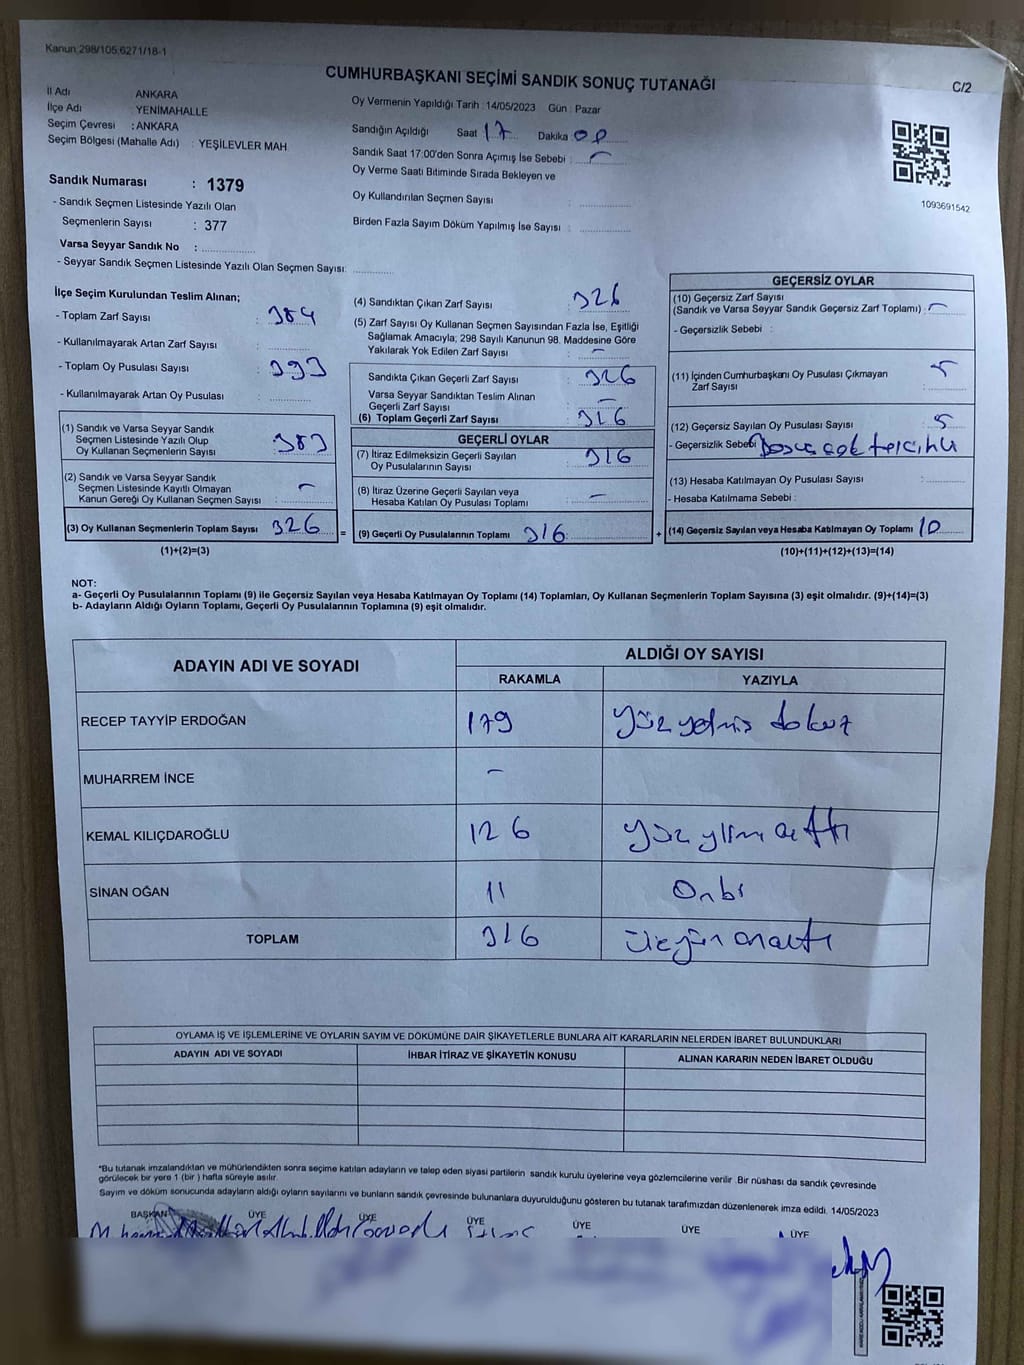 Kanun 298/105,6271/18-1
CUMHURBAŞKANI SEÇİMİ SANDIK SONUÇ TUTANAĞI
C/2
İl Adı ANKARA
İlçe Adı YENİMAHALLE
Seçim Çevresi : ANKARA
Seçim Bölgesi (Mahalle Adı) : YEŞİLEVLER MAH.
Sandık Numarası : 1379
- Sandık Seçmen Listesinde Yazılı Olan
Seçmenlerin Sayısı : 377
Varsa Seyyar Sandık No :
- Seyyar Sandık Seçmen Listesinde Yazılı Olan Seçmen Sayısı:
Oy Vermenin Yapıldığı Tarih : 14/05/2023 Gün : Pazar
Sandığın Açıldığı Saat 17 Dakika
Sandık Saat 17:00'den Sonra Açımış İse Sebebi : -
Oy Verme Saati Bitiminde Sırada Bekleyen ve
Oy Kullandırılan Seçmen Sayısı :
Birden Fazla Sayım Döküm Yapılmış İse Sayısı :
1093691542
İlçe Seçim Kurulundan Teslim Alınan;
- Toplam Zarf Sayısı : 384
- Kullanılmayarak Artan Zarf Sayısı :
- Toplam Oy Pusulası Sayısı : 393
- Kullanılmayarak Artan Oy Pusulası :
(1) Sandık ve Varsa Seyyar Sandık
Seçmen Listesinde Yazılı Olup
Oy Kullanan Seçmenlerin Sayısı :
(2) Sandık ve Varsa Seyyar Sandık
Seçmen Listesinde Kayıtlı Olmayan
Kanun Gereği Oy Kullanan Seçmen Sayısı : -
(3) Oy Kullanan Seçmenlerin Toplam Sayısı 326
(1)+(2)=(3)
=
(4) Sandıktan Çıkan Zarf Sayısı : 326
(5) Zarf Sayısı Oy Kullanan Seçmen Sayısından Fazla İse, Eşitliği
Sağlamak Amacıyla; 298 Sayılı Kanunun 98. Maddesine Göre
Yakılarak Yok Edilen Zarf Sayısı : -
Sandıkta Çıkan Geçerli Zarf Sayısı : 326
Varsa Seyyar Sandıktan Teslim Alınan
Geçerli Zarf Sayısı : -
(6) Toplam Geçerli Zarf Sayısı : 316
GEÇERLİ OYLAR
(7) İtiraz Edilmeksizin Geçerli Sayılan
Oy Pusulalarının Sayısı : 316
(8) İtiraz Üzerine Geçerli Sayılan veya
Hesaba Katılan Oy Pusulası Toplamı : -
(9) Geçerli Oy Pusulalarının Toplamı 316
+
GEÇERSİZ OYLAR
(10) Geçersiz Zarf Sayısı
(Sandık ve Varsa Seyyar Sandık Geçersiz Zarf Toplamı) : -
- Geçersizlik Sebebi :
(11) İçinden Cumhurbaşkanı Oy Pusulası Çıkmayan
Zarf Sayısı : 5
(12) Geçersiz Sayılan Oy Pusulası Sayısı : 5
- Geçersizlik Sebebi
(13) Hesaba Katılmayan Oy Pusulası Sayısı :
- Hesaba Katılmama Sebebi :
(14) Geçersiz Sayılan veya Hesaba Katılmayan Oy Toplamı 10
(10)+(11)+(12)+(13)=(14)
NOT:
a- Geçerli Oy Pusulalarının Toplamı (9) ile Geçersiz Sayılan veya Hesaba Katılmayan Oy Toplamı (14) Toplamları, Oy Kullanan Seçmenlerin Toplam Sayısına (3) eşit olmalıdır. (9)+(14)=(3)
b- Adayların Aldığı Oyların Toplamı, Geçerli Oy Pusulalarının Toplamına (9) eşit olmalıdır.
ADAYIN ADI VE SOYADI
ALDIĞI OY SAYISI
RAKAMLA YAZIYLA
RECEP TAYYİP ERDOĞAN 179 yüz yetmiş dokuz
MUHARREM İNCE -
KEMAL KILIÇDAROĞLU 126 yüz yirmi altı
SİNAN OĞAN 11 Onbir
TOPLAM 316 üçyüz onaltı
OYLAMA İŞ VE İŞLEMLERİNE VE OYLARIN SAYIM VE DÖKÜMÜNE DAİR ŞİKAYETLERLE BUNLARA AİT KARARLARIN NELERDEN İBARET BULUNDUKLARI
ADAYIN ADI VE SOYADI İHBAR İTİRAZ VE ŞİKAYETİN KONUSU ALINAN KARARIN NEDEN İBARET OLDUĞU
*Bu tutanak imzalandıktan ve mühürlendikten sonra seçime katılan adayların ve talep eden siyasi partilerin sandık kurulu üyelerine veya gözlemcilerine verilir .Bir nüshası da sandık çevresinde
görülecek bir yere 1 (bir ) hafta süreyle asılır.
Sayım ve döküm sonucunda adayların aldığı oyların sayılarını ve bunların sandık çevresinde bulunanlara duyurulduğunu gösteren bu tutanak tarafımızdan düzenlenerek imza edildi. 14/05/2023
BAŞKAN ÜYE ÜYE ÜYE ÜYE ÜYE ÜYE